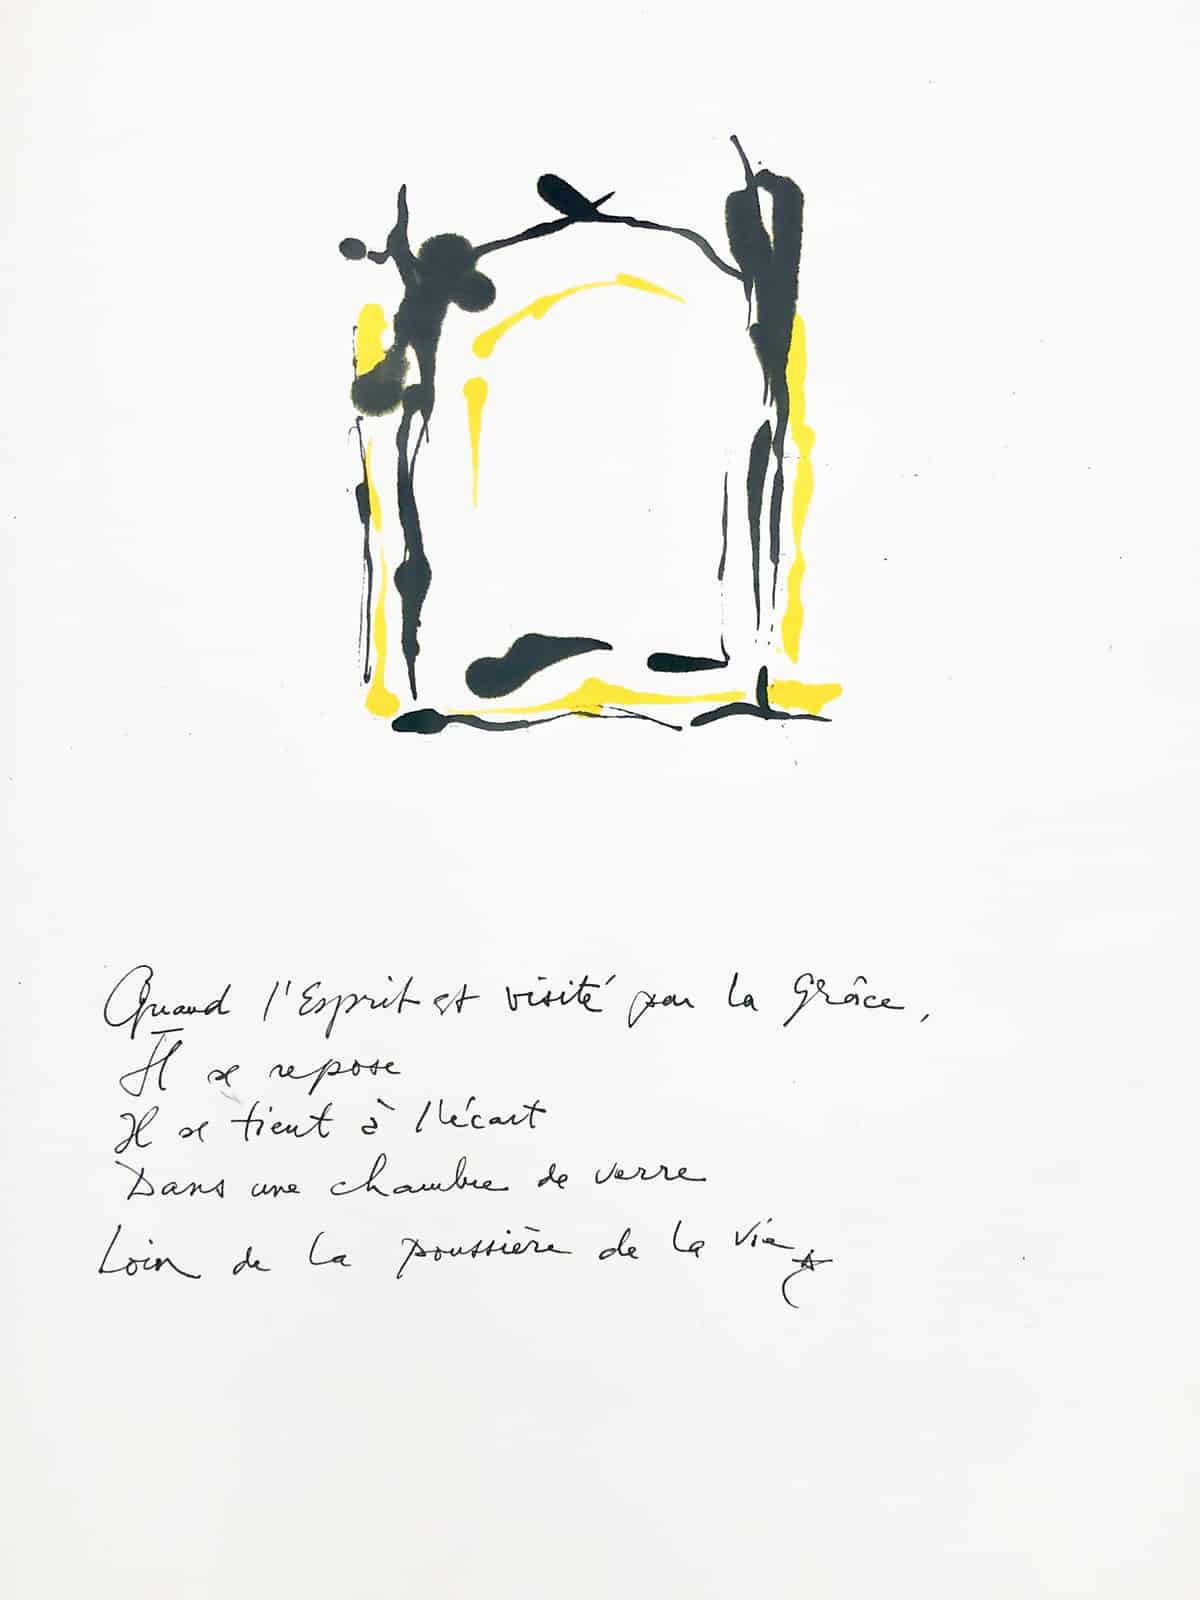 Quand l'Esprit est visité par la Grâce,
Il se repose
Il se tient à l'écart
Dans une chambre de verre
Loin de la poussière de la vie